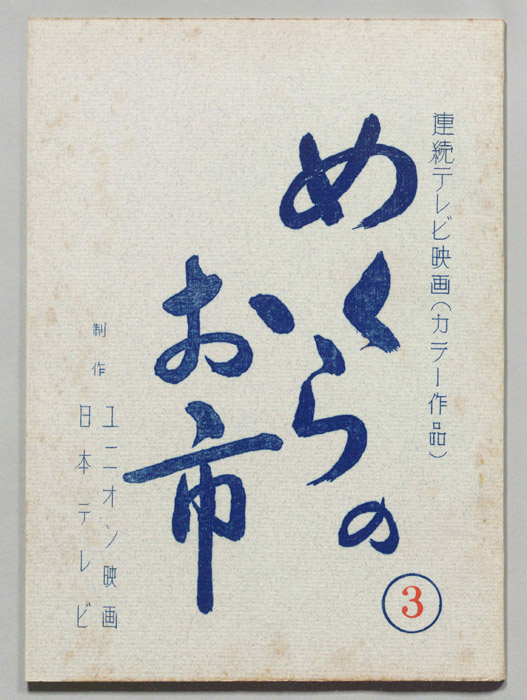 連続テレビ映画(カラー作品)
めくらの
お市
3
制作
ユニオン映画
日本テレビ